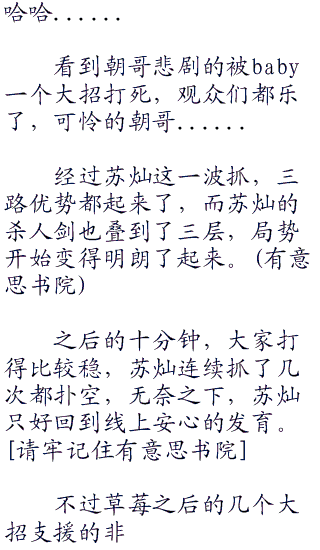 哈哈......
看到朝哥悲剧的被baby
一个大招打死，观众们都乐
了，可怜的朝哥......
经过苏灿这一波抓，三
路优势都起来了，而苏灿的
杀人剑也叠到了三层，局势
开始变得明朗了起来。(有意
思书院)
之后的十分钟，大家打
得比较稳，苏灿连续抓了几
次都扑空，无奈之下，苏灿
只好回到线上安心的发育。
[请牢记住有意思书院]
不过草莓之后的几个大
招支援的非